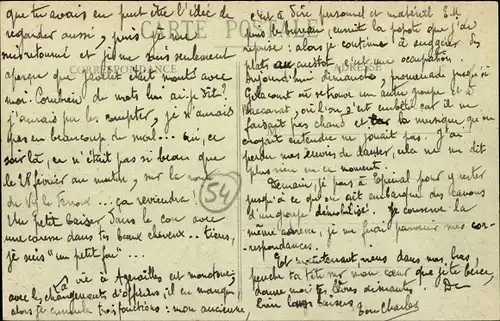 que tu avais eu peut être l'idée de
regarder aussi, puis je me
suis retourné et je me suis seulement
aperçu que j'allais être monté avec
moi Combien de mots lui ai-je dit?
j'aurais pu les compter, je n'aurais
pas eu beaucoup de mal... oui, ce
soir là, ce n'était pas si beau que
le 28 février au matin, sur la route
de ... ça reviendra!
Un petit baiser dans le cou avec
une caresse dans tes beaux cheveux.. tiens,
je suis "un petit fou"...
La vie à Azerailles est monotone;
avec les changements d'officiers, il en manque,
alors je cumule trois fonctions: mon ancienne,
c'est à dire personnel et matériel E.M
puis le bureau, ensuite la popote que j'ai
reprise: alors je continue à suggérer des
plats au cuistot, c'est une occupation.
Aujourd'hui dimanche, promenade jusqu'à
Gélacourt où se trouve un autre groupe et à
Baccarat, où l'on s'est embêté car il ne
faisait pas chaud et la musique qu'on
croyait entendre ne jouait pas. J'ai
perdu mes envies de danser, cela ne me dit
plus rien en ce moment.
Demain, je pars à Epinal pour y rester
jusqu'à ce qu'on ait embarqué des canons
d'un groupe démobilisé. Je conserve la
même adresse, je me ferai parvenir mes cor-
respondances.
Et maintenant viens dans mes bras,
penche ta tête sur mon cœur que je te berce,
donne moi tes lèvres aimantes. De
bien longs baisers Ton Charles
CARTE POSTALE
CORRESPONDANCE
54